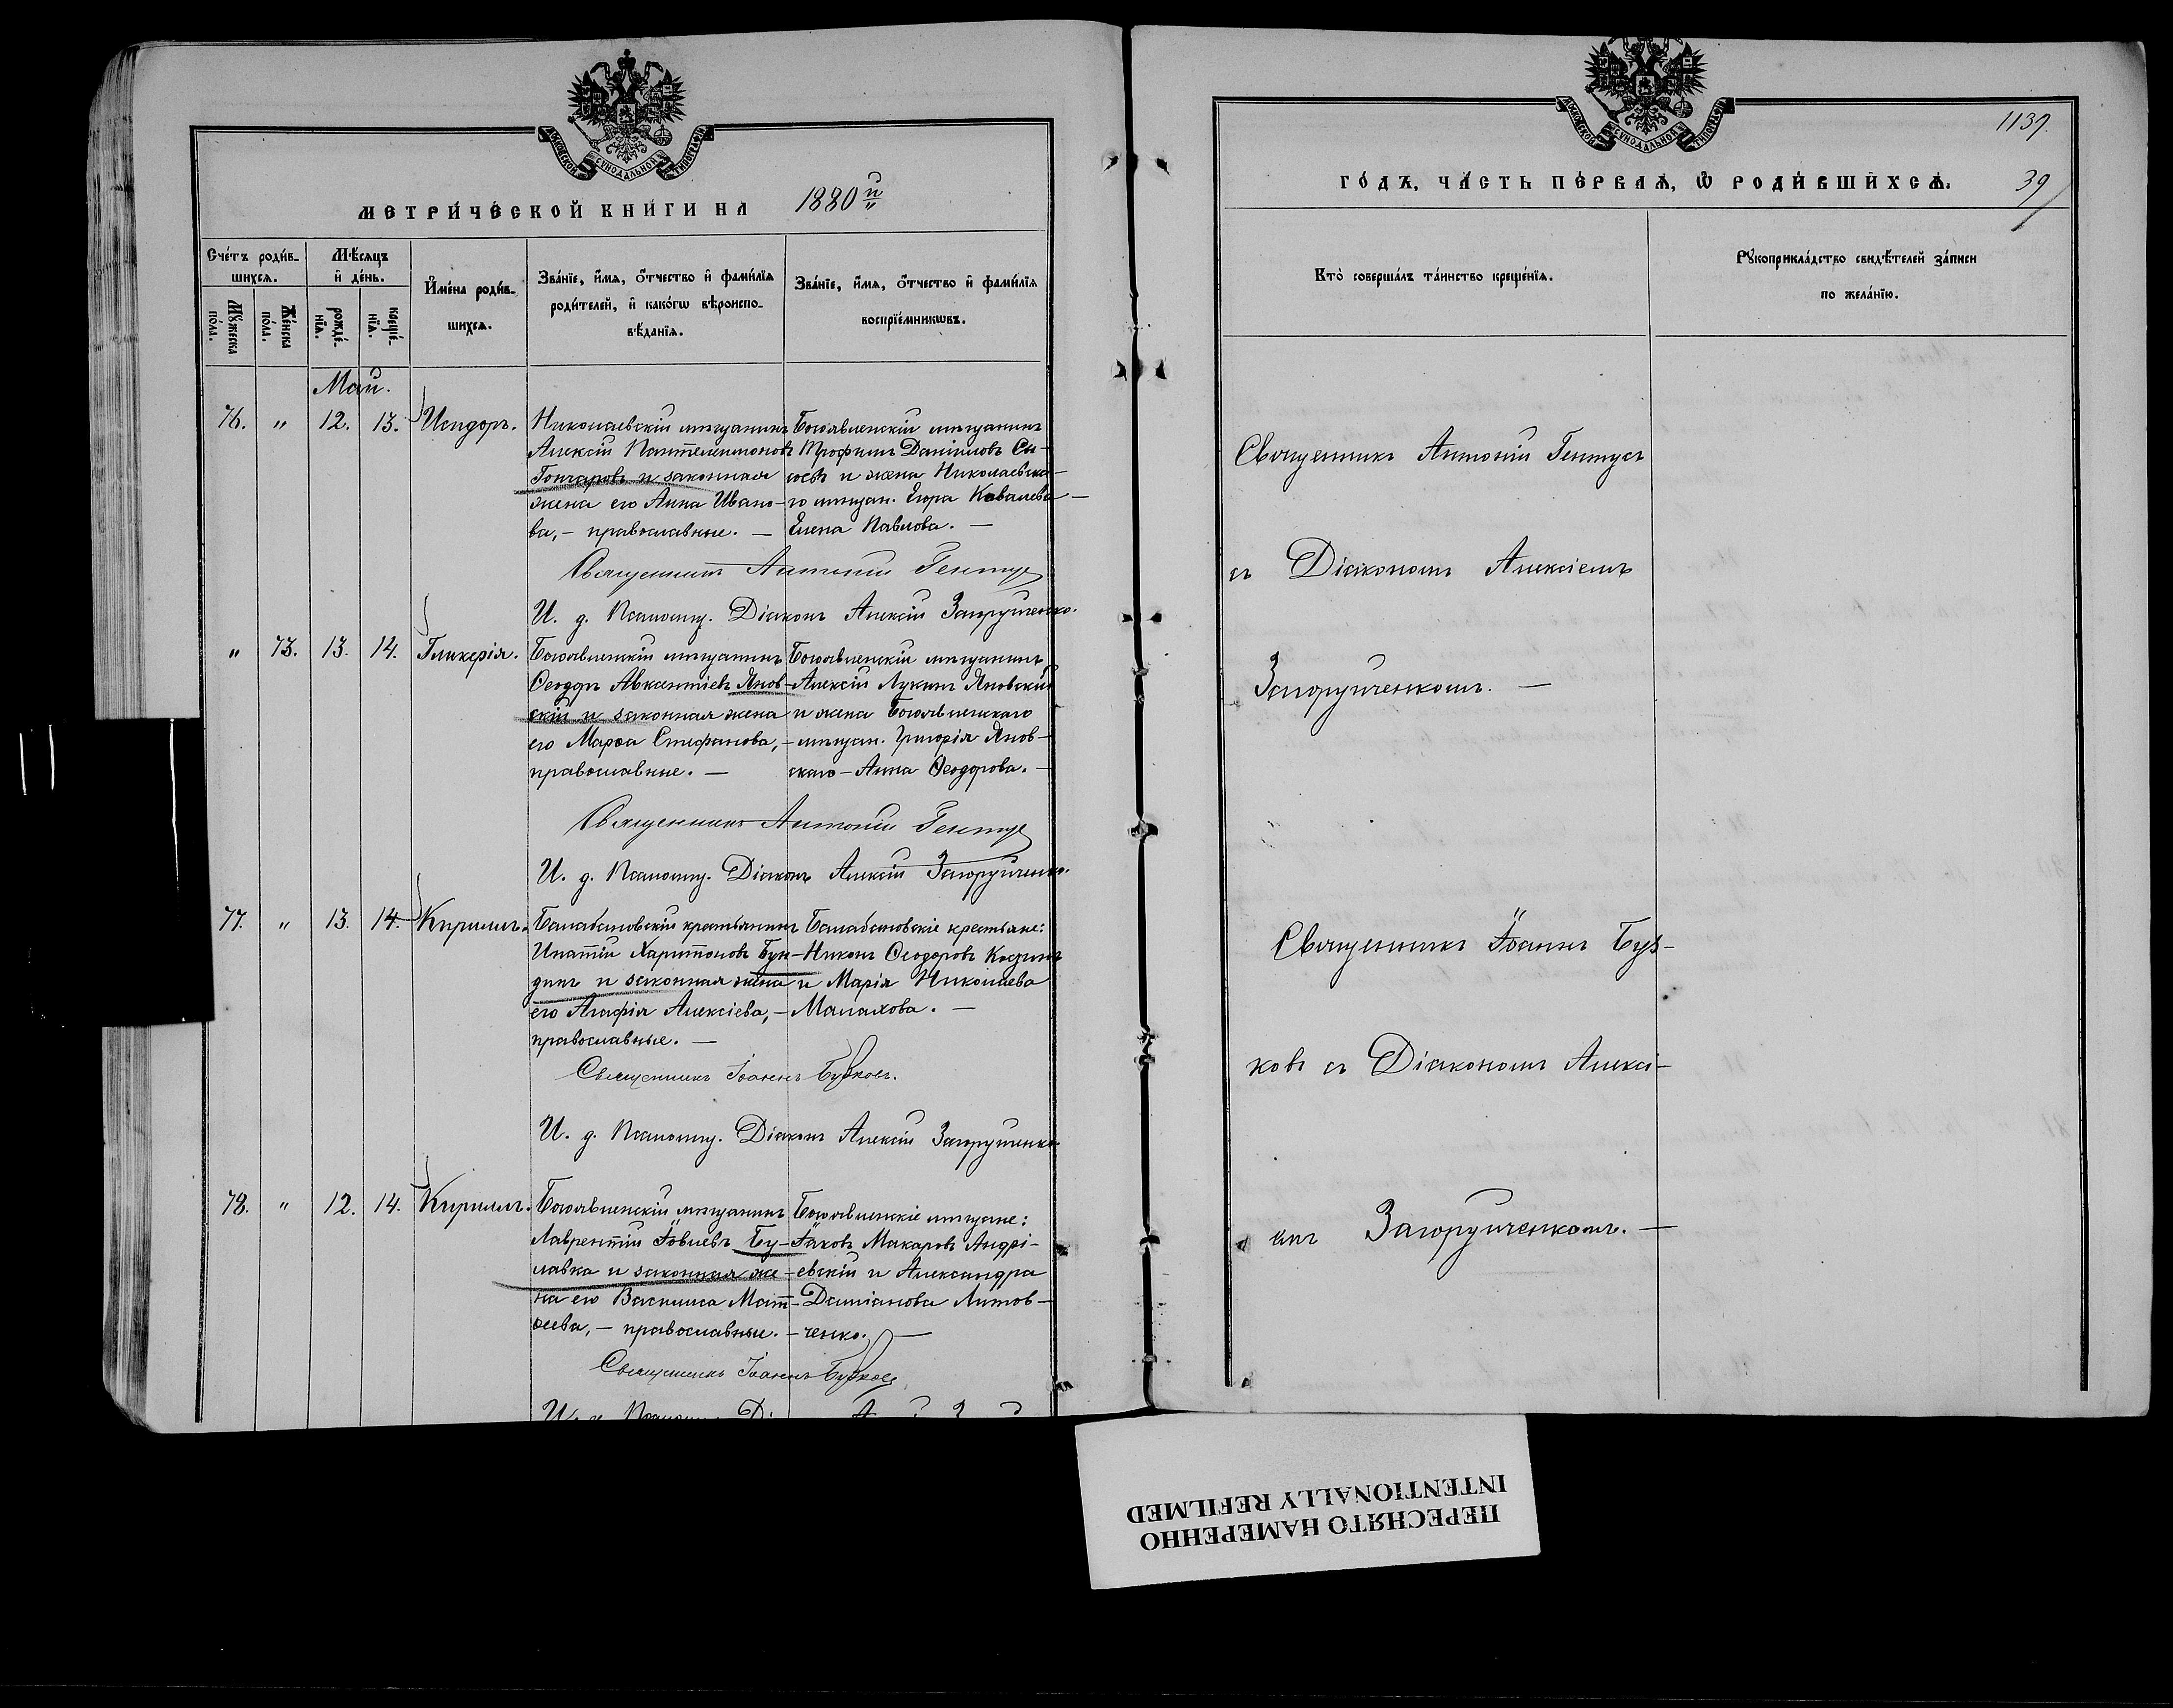 МОСКОВСКОЙ СѴНОДАЛЬНОЙ ТИПОГРАФІИ
МЕТРИ́ЧЕСКОЙ КНИ́ГИ НА 1880й
Сче́тъ роди́в-
шихсѧ.
Мѣ́сѧцъ
и҆ де́нь.
Мꙋ́жеска
по́ла.
Же́нска
по́ла.
рожде́-
нїѧ.
креще́-
нїѧ.
И҆мена̀ роди́в-
шихсѧ.
Зва́нїе, и҆́мѧ, ѻ҆́тчество и҆ фами́лїѧ
роди́телей, и҆ како́гѡ вѣроиспо-
вѣ́данїѧ.
Зва́нїе, и҆́мѧ, ѻ҆́тчество и҆ фами́лїѧ
воспрїе́мникѡвъ.
Май.
76. " 12. 13. Исидоръ.
Николаевскій мѣщанинъ
Алексій Пантелеимоновъ
Гончаровъ и законная
жена его Анна Ивано-
ва, – православные. –
Богоявленскій мѣщанинъ
Трофимъ Даніиловъ Си-
совъ и жена Николаевска-
го мѣщан. Егора Ковалева –
Елена Павлова. –
Священникъ Антоній Гентуе
И. д. Псаломщ. Діаконъ Алексій Загоруйченко.
" 73. 13. 14. Гликерія.
Богоявленскій мѣщанинъ
Ѳеодоръ Авксентіевъ Янов-
скій и законная жена
его Марѳа Стефанова, –
православные. –
Богоявленскій мѣщанинъ
Алексій Лукинъ Яновскій
и жена Богоявленскаго
мѣщан. Григорія Янов-
скаго – Анна Ѳеодорова. –
Священникъ Антоній Гентуе
И. д. Псаломщ. Діаконъ Алексій Загоруйченко.
77. " 13. 14. Кириллъ.
Балабановскій крестьянинъ
Ипатій Харитоновъ Бун-
динъ и законная жена
его Агафія Алексіева, –
православные. –
Балабановскіе крестьяне:
Никонъ Ѳеодоровъ
и Марія Николаева
Малахова. –
Священникъ Іоаннъ Бузковъ.
И. д. Псаломщ. Діаконъ Алексій Загоруйченко
78. " 12. 14. Кириллъ.
Богоявленскій мѣщанинъ
Лаврентій Іовлевъ Бу-
лавка и законная же-
на его Василиса Матѳ-
ѳеева, – православные. –
Богоявленскіе мѣщане:
Іаковъ Макаровъ Андрі-
евскій и Александра
Даміанова Литов-
ченко. –
Священникъ Іоаннъ Бузковъ
МОСКОВСКОЙ СѴНОДАЛЬНОЙ ТИПОГРАФІИ
1139.
39
ГО́ДЪ, ЧА́СТЬ ПЕ́РВАѦ, Ѡ҆ РОДИ́ВШИХСѦ.
Кто̀ соверша́лъ та́инство креще́нїѧ.
Рꙋкоприкла́дство свидѣ́телей за́писи
по жела́нїю.
Священникъ Антоній Гентуеъ
съ Діакономъ Алексіемъ
Загоруйченкомъ. –
Священникъ Іоаннъ Буз-
ковъ съ Діакономъ Алексі-
емъ Загоруйченкомъ. –
ПЕРЕСНЯТО НАМЕРЕННО
INTENTIONALLY REFILMED